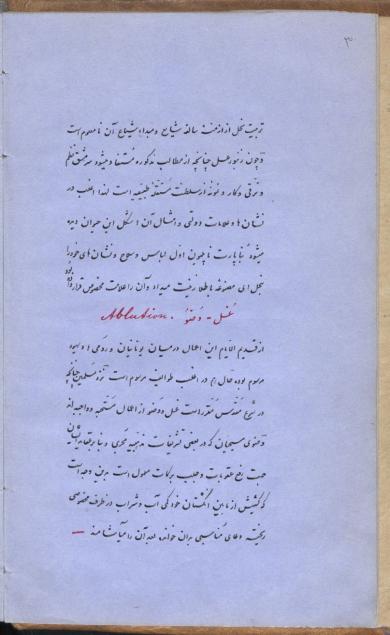 ۳
تربیت نحل از ازمنهٔ سالفه شایع و مبداء شیاع آن نامعلوم است
و چون زنبور عسل چنانچه از مطالب مذکوره مستفاد میشود سرمشق نظم
و ترقی و کار و نمونه از سلطنت مستقلهٔ طبیعیه است لهذا اغلب در
نشان‌ها و علامات دولتی و امثال آن اشکل این حیوان دیده
میشود بناپارت ناپلیون اول لباس و سوج و نشان‌های خود را
بنحل‌های مصنوعهٔ با طلا زینت میداد و آن را علامت مخصوص قرار داده بود
غسل - وضو . Ablution
از قدیم الایام این اعمال درمیان یونانیان و رومی‌ها و یهود
مرسوم بوده حال هم در اغلب طوائف مرسوم است نزد مسلمین چنانچه
در شرع مقدس مقرر است غسل و وضو از اعمال مستحبه و واجبه اند
وضوی مسیحیان که در بعضی تشریفات مذهبیه مجری و بنا بر عقاید ایشان
جهت رفع عقوبات و جلب برکات معمول است برین وجه است
که کشیش از مابین انگشتان خود کمی آب و شراب در ظرف مخصوصی
ریخته و دعای مناسبی بر آن خوانده بعد آن را میآشامند —